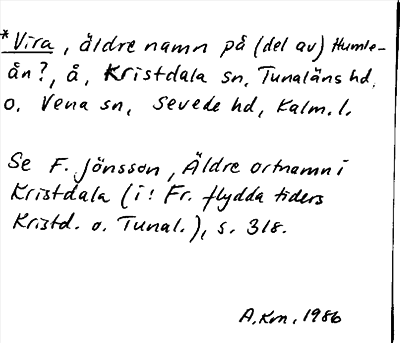 *Vira, äldre namn på (del av) Humle-
ån?, å, Kristdala sn, Tunaläns hd,
o. Vena sn, Sevede hd, Kalm. l.
Se F. Jönsson, Äldre ortnamn i
Kristdala (i: Fr. flydda tiders
Kristd. o. Tunal.), s. 318.
A. Km. 1986